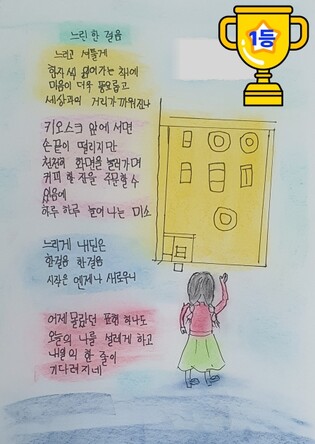 느린 한 걸음
느리고 서툴게
한자씩 읽어가는 책에
마음이 더욱 풍요롭고
세상과의 거리가 까워집니
키오스크 앞에 서면
손끝이 떨리지만
천천히 화면을 눌러가며
커피 한 잔을 주문할 수
있음에
하루 하루 늘어나는 미소
느리게 내딛은
한걸음 한걸음
시작은 언제나 새로우니
어제 몰랐던 표현 하나도
오늘의 나를 설레게 하고
내일의 한 줄이
기다려지네
1등